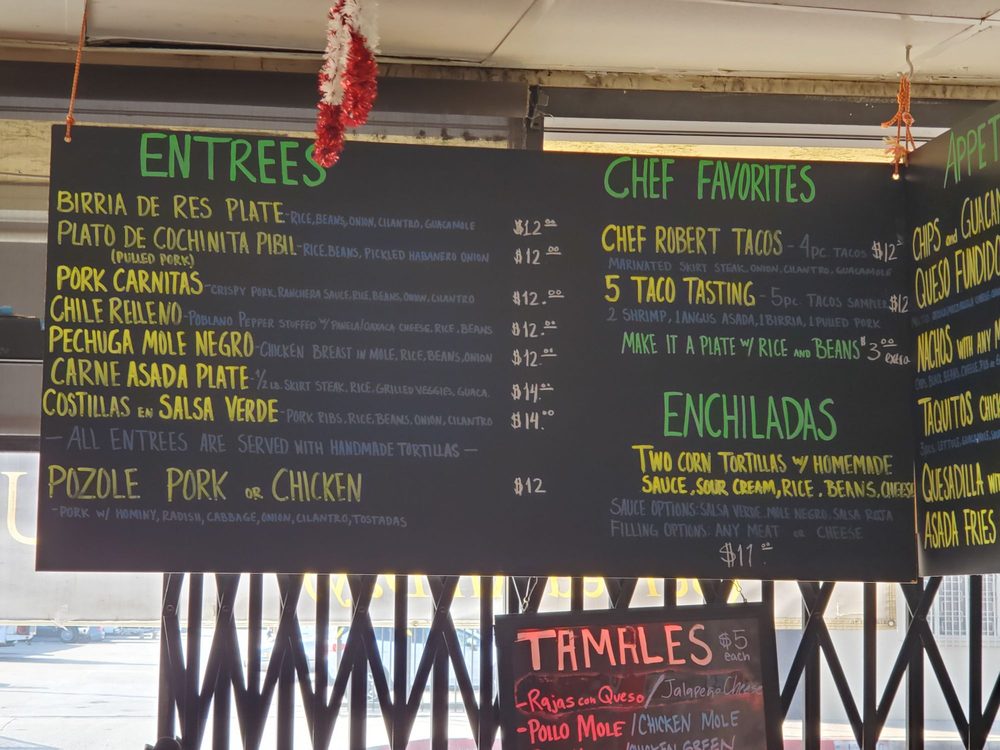 ENTREES
BIRRIA DE RES PLATE - RICE, BEANS, ONION, CILANTRO, GUACAMOLE $12.00
PLATO DE COCHINITA PIBIL - RICE, BEANS, PICKLED HABANERO ONION $12.00
(PULLED PORK)
PORK CARNITAS - CRISPY PORK, RANCHERA SAUCE, RICE, BEANS, ONION, CILANTRO $12.00
CHILE RELLENO - POBLANO PEPPER STUFFED W/ PANELA/OAXACA CHEESE, RICE, BEANS $12.00
PECHUGA MOLE NEGRO - CHICKEN BREAST IN MOLE, RICE, BEANS, ONION $12.00
CARNE ASADA PLATE - 1/2 LB. SKIRT STEAK, RICE, GRILLED VEGGIES, GUACA. $14.00
COSTILLAS EN SALSA VERDE - PORK RIBS, RICE, BEANS, ONION, CILANTRO $14.00
- ALL ENTREES ARE SERVED WITH HANDMADE TORTILLAS -
POZOLE PORK OR CHICKEN $12
- PORK W/ HOMINY, RADISH, CABBAGE, ONION, CILANTRO, TOSTADAS
CHEF FAVORITES
CHEF ROBERT TACOS - 4pc. TACOS $12
MARINATED SKIRT STEAK, ONION, CILANTRO, GUACAMOLE
5 TACO TASTING - 5pc. TACOS SAMPLER $12
2 SHRIMP, 1 ANGUS ASADA, 1 BIRRIA, 1 PULLED PORK
MAKE IT A PLATE W/ RICE AND BEANS $3.00 extra
ENCHILADAS
TWO CORN TORTILLAS W/ HOMEMADE
SAUCE, SOUR CREAM, RICE, BEANS, CHEESE
SAUCE OPTIONS: SALSA VERDE, MOLE NEGRO, SALSA ROJA
FILLING OPTIONS: ANY MEAT OR CHEESE
$11.00
APPET
CHIPS and GUACAM
QUESO FUNDIDO
NACHOS WITH ANY M
TAQUITOS CHIC
QUESADILLA WIT
ASADA FRIES
TAMALES $5 each
- Rajas con Queso / Jalapeño Cheese
- POLLO MOLE / CHICKEN MOLE
/ CHICKEN GREEN